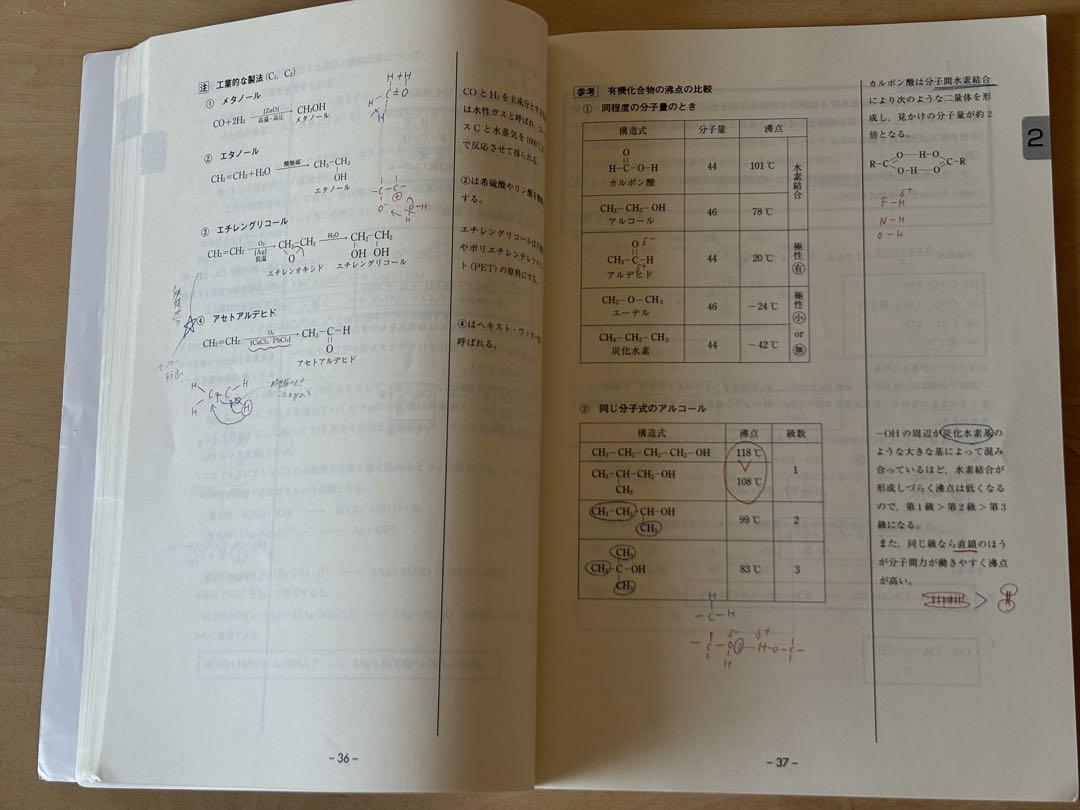 注 工業的な製法(C₁, C₂)
① メタノール
CO+2H₂ [ZnO] 高温・高圧 → CH₃OH
メタノール
② エタノール
CH₂=CH₂+H₂O 酸触媒 → CH₃-CH₂
OH
エタノール
③ エチレングリコール
CH₂=CH₂ O₂ [Ag] 低温 → CH₂-CH₂ H₂O → CH₂-CH₂
O OH OH
エチレンオキシド エチレングリコール
④ アセトアルデヒド
CH₂=CH₂ O₂ [CuCl₂, PdCl₂] → CH₃-C-H
O
アセトアルデヒド
H+H
C±O
H
H
O⁻ H
H C+C H
H H
COとH₂を主成分とする
は水性ガスと呼ばれ、コー
スCと水蒸気を1000℃
で反応させて得られる。
②は希硫酸やリン酸を
する。
エチレングリコールは
やポリエチレンテレフ
ト(PET)の原料にする。
④はヘキスト・ワッカー
呼ばれる。
- 36 -
参考 有機化合物の沸点の比較
① 同程度の分子量のとき
構造式 分子量 沸点
O
H-C-O-H 44 101℃
カルボン酸
水素結合
CH₃-CH₂-OH 46 78℃
アルコール
O δ-
CH₃-C-H 44 20℃
δ+
アルデヒド
極性有
CH₃-O-CH₃ 46 -24℃
エーテル
極性小or無
CH₃-CH₂-CH₃ 44 -42℃
炭化水素
② 同じ分子式のアルコール
構造式 沸点 級数
CH₃-CH₂-CH₂-CH₂-OH 118℃
1
CH₃-CH-CH₂-OH 108℃
CH₃
CH₃-CH₂-CH-OH 99℃ 2
CH₃
CH₃
CH₃-C-OH 83℃ 3
CH₃
H
-C-H
δ- δ+
-C-O H-O-C-
H
カルボン酸は分子間水素結合
により次のような二量体を形
成し、見かけの分子量が約2
倍となる。
O---H-O
R-C C-R
O-H---O
δ+
F-H
N-H
O-H
2
-OHの周辺が炭化水素基の
ような大きな基によって混み
合っているほど、水素結合が
形成しづらく沸点は低くなる
ので、第1級>第2級>第3
級になる。
また、同じ級なら直鎖のほう
が分子間力が働きやすく沸点
が高い。
>
- 37 -